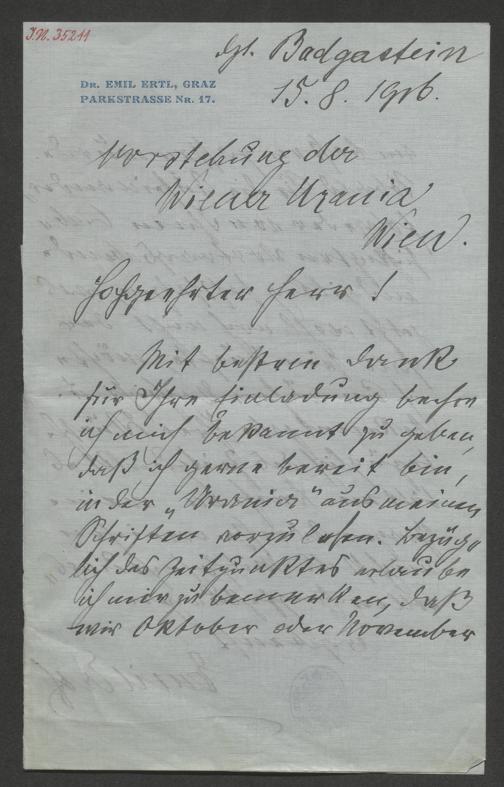 J.N. 35211
dzt. Badgastein
15. 8. 1906.
DR. EMIL ERTL, GRAZ
PARKSTRASSE NR. 17.
Vorstehung der
Wiener Urania
Wien.
Hochgeehrter Herr!
Mit bestem Dank
für Ihre Einladung beehre
ich mich bekannt zu geben,
daß ich gerne bereit bin,
in der „Urania" aus meinen
Schriften vorzulesen. Bezüg-
lich des Zeitpunktes erlaube
ich mir zu bemerken, daß
mir Oktober oder November